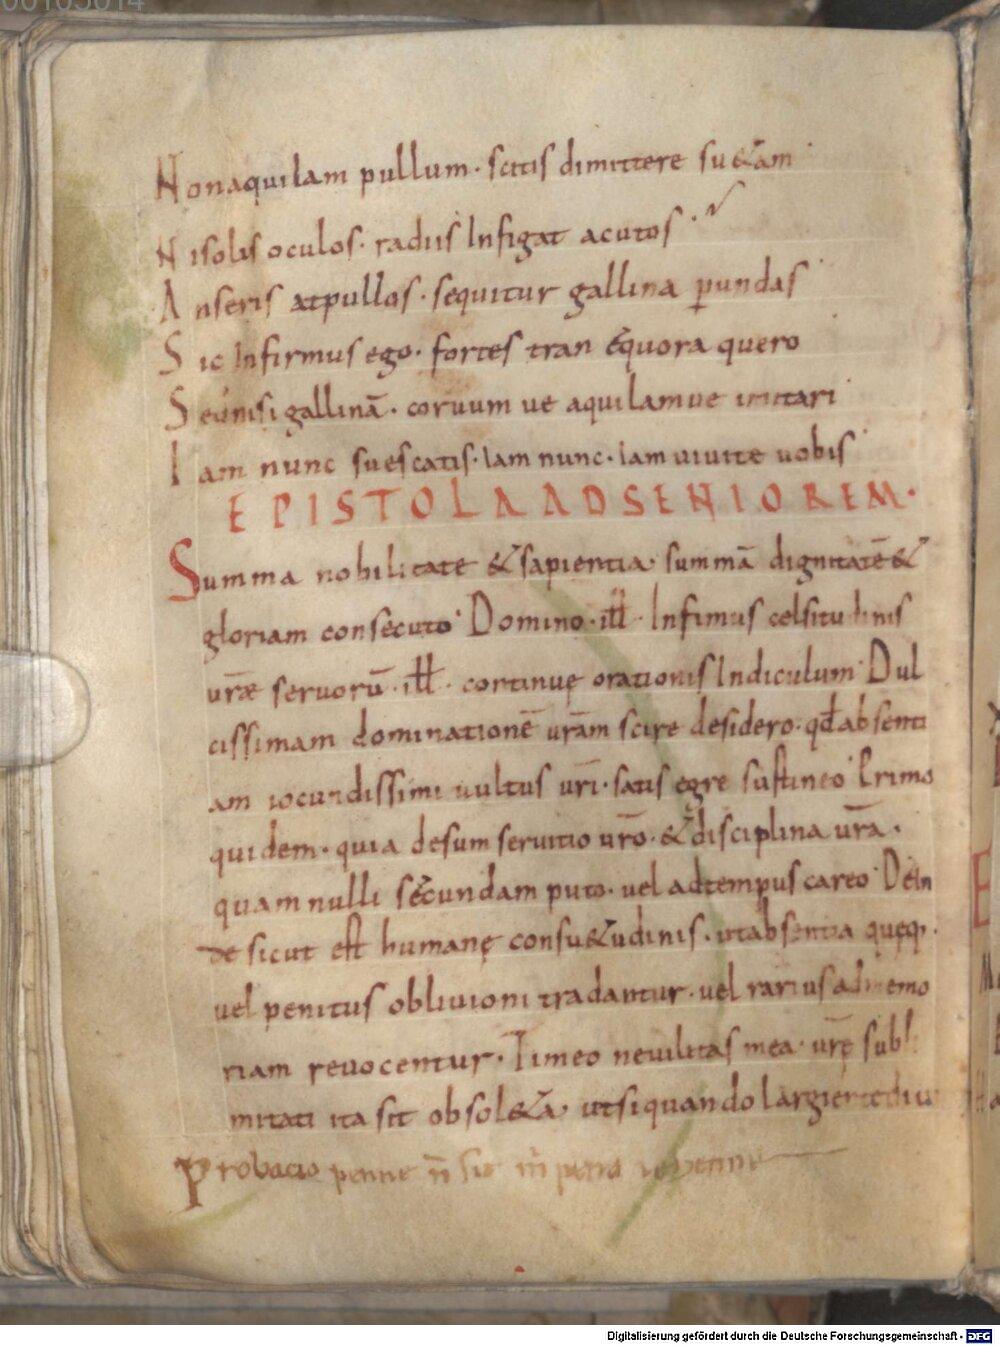 00105014
Non aquilam pullum · scitis dimittere su&am
Ni solis oculos · radiis Infigat acutos ·
Anseris at pullos · sequitur gallina per undas
Sic Infirmus ego · fortes tran ęquora quero
Seu nisi gallinā · coruum ue aquilamue imitari
Iam nunc suescatis · iam nunc · iam uiuite uobis
EPISTOLA AD SENIOREM ·
Summa nobilitate & sapientia summā dignitatē &
gloriam consecuto · Domino · ill · Infimus celsitudinis
uræ seruorū · ill · continuę orationis Indiculum · Dul
cissimam dominationē uram scire desidero · qd absenti
am iocundissimi uultus uri · satis egre sustineo · Primo
quidem · quia desum seruitio uro · & disciplina ura ·
quam nulli secundam puto · uel ad tempus careo · Dein
de sicut est humanę consu&udinis · ut absentia quęq ·
uel penitus obliuioni tradantur · uel rarius ad memo
riam reuocentur · Timeo ne uilitas mea · urę subli
mitati ita sit obsol&a ut si quando largiente diu
Probacio penne n sit m pena
Digitalisierung gefördert durch die Deutsche Forschungsgemeinschaft - DFG